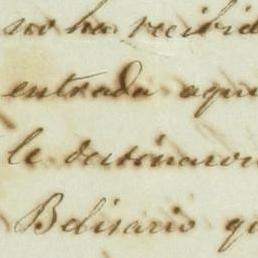 no ha recibid
entrada aqu
le destinaron
Belisario q